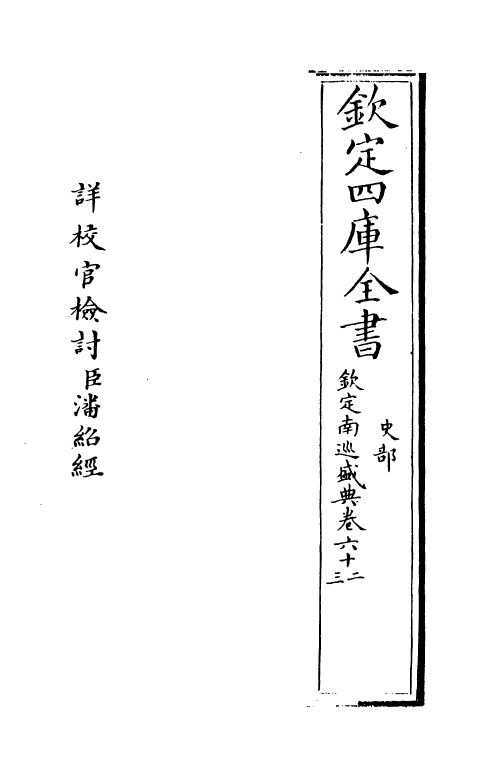 欽定四庫全書
史部
欽定南巡盛典卷六十二三
詳校官檢討臣潘紹經